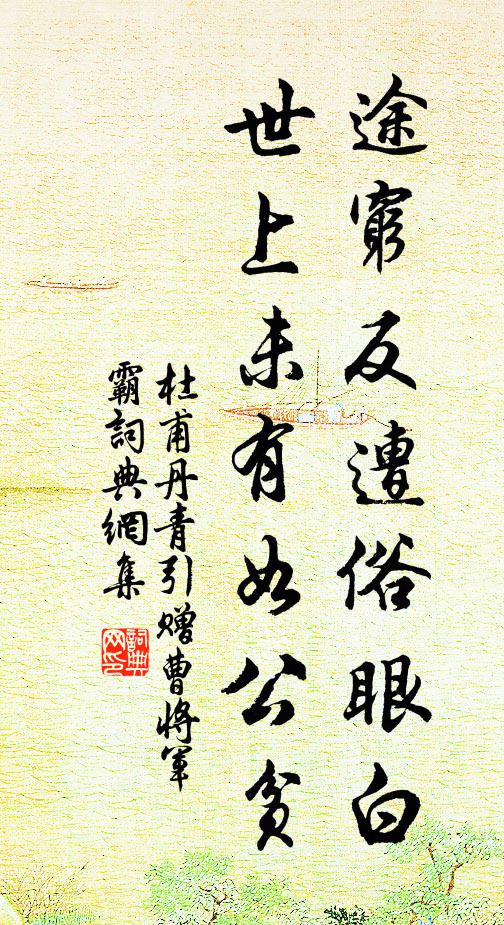 途窮反遭俗眼白
世上未有如公貧
杜甫丹青引贈曹將軍
霸詞典網集
詞典
网印